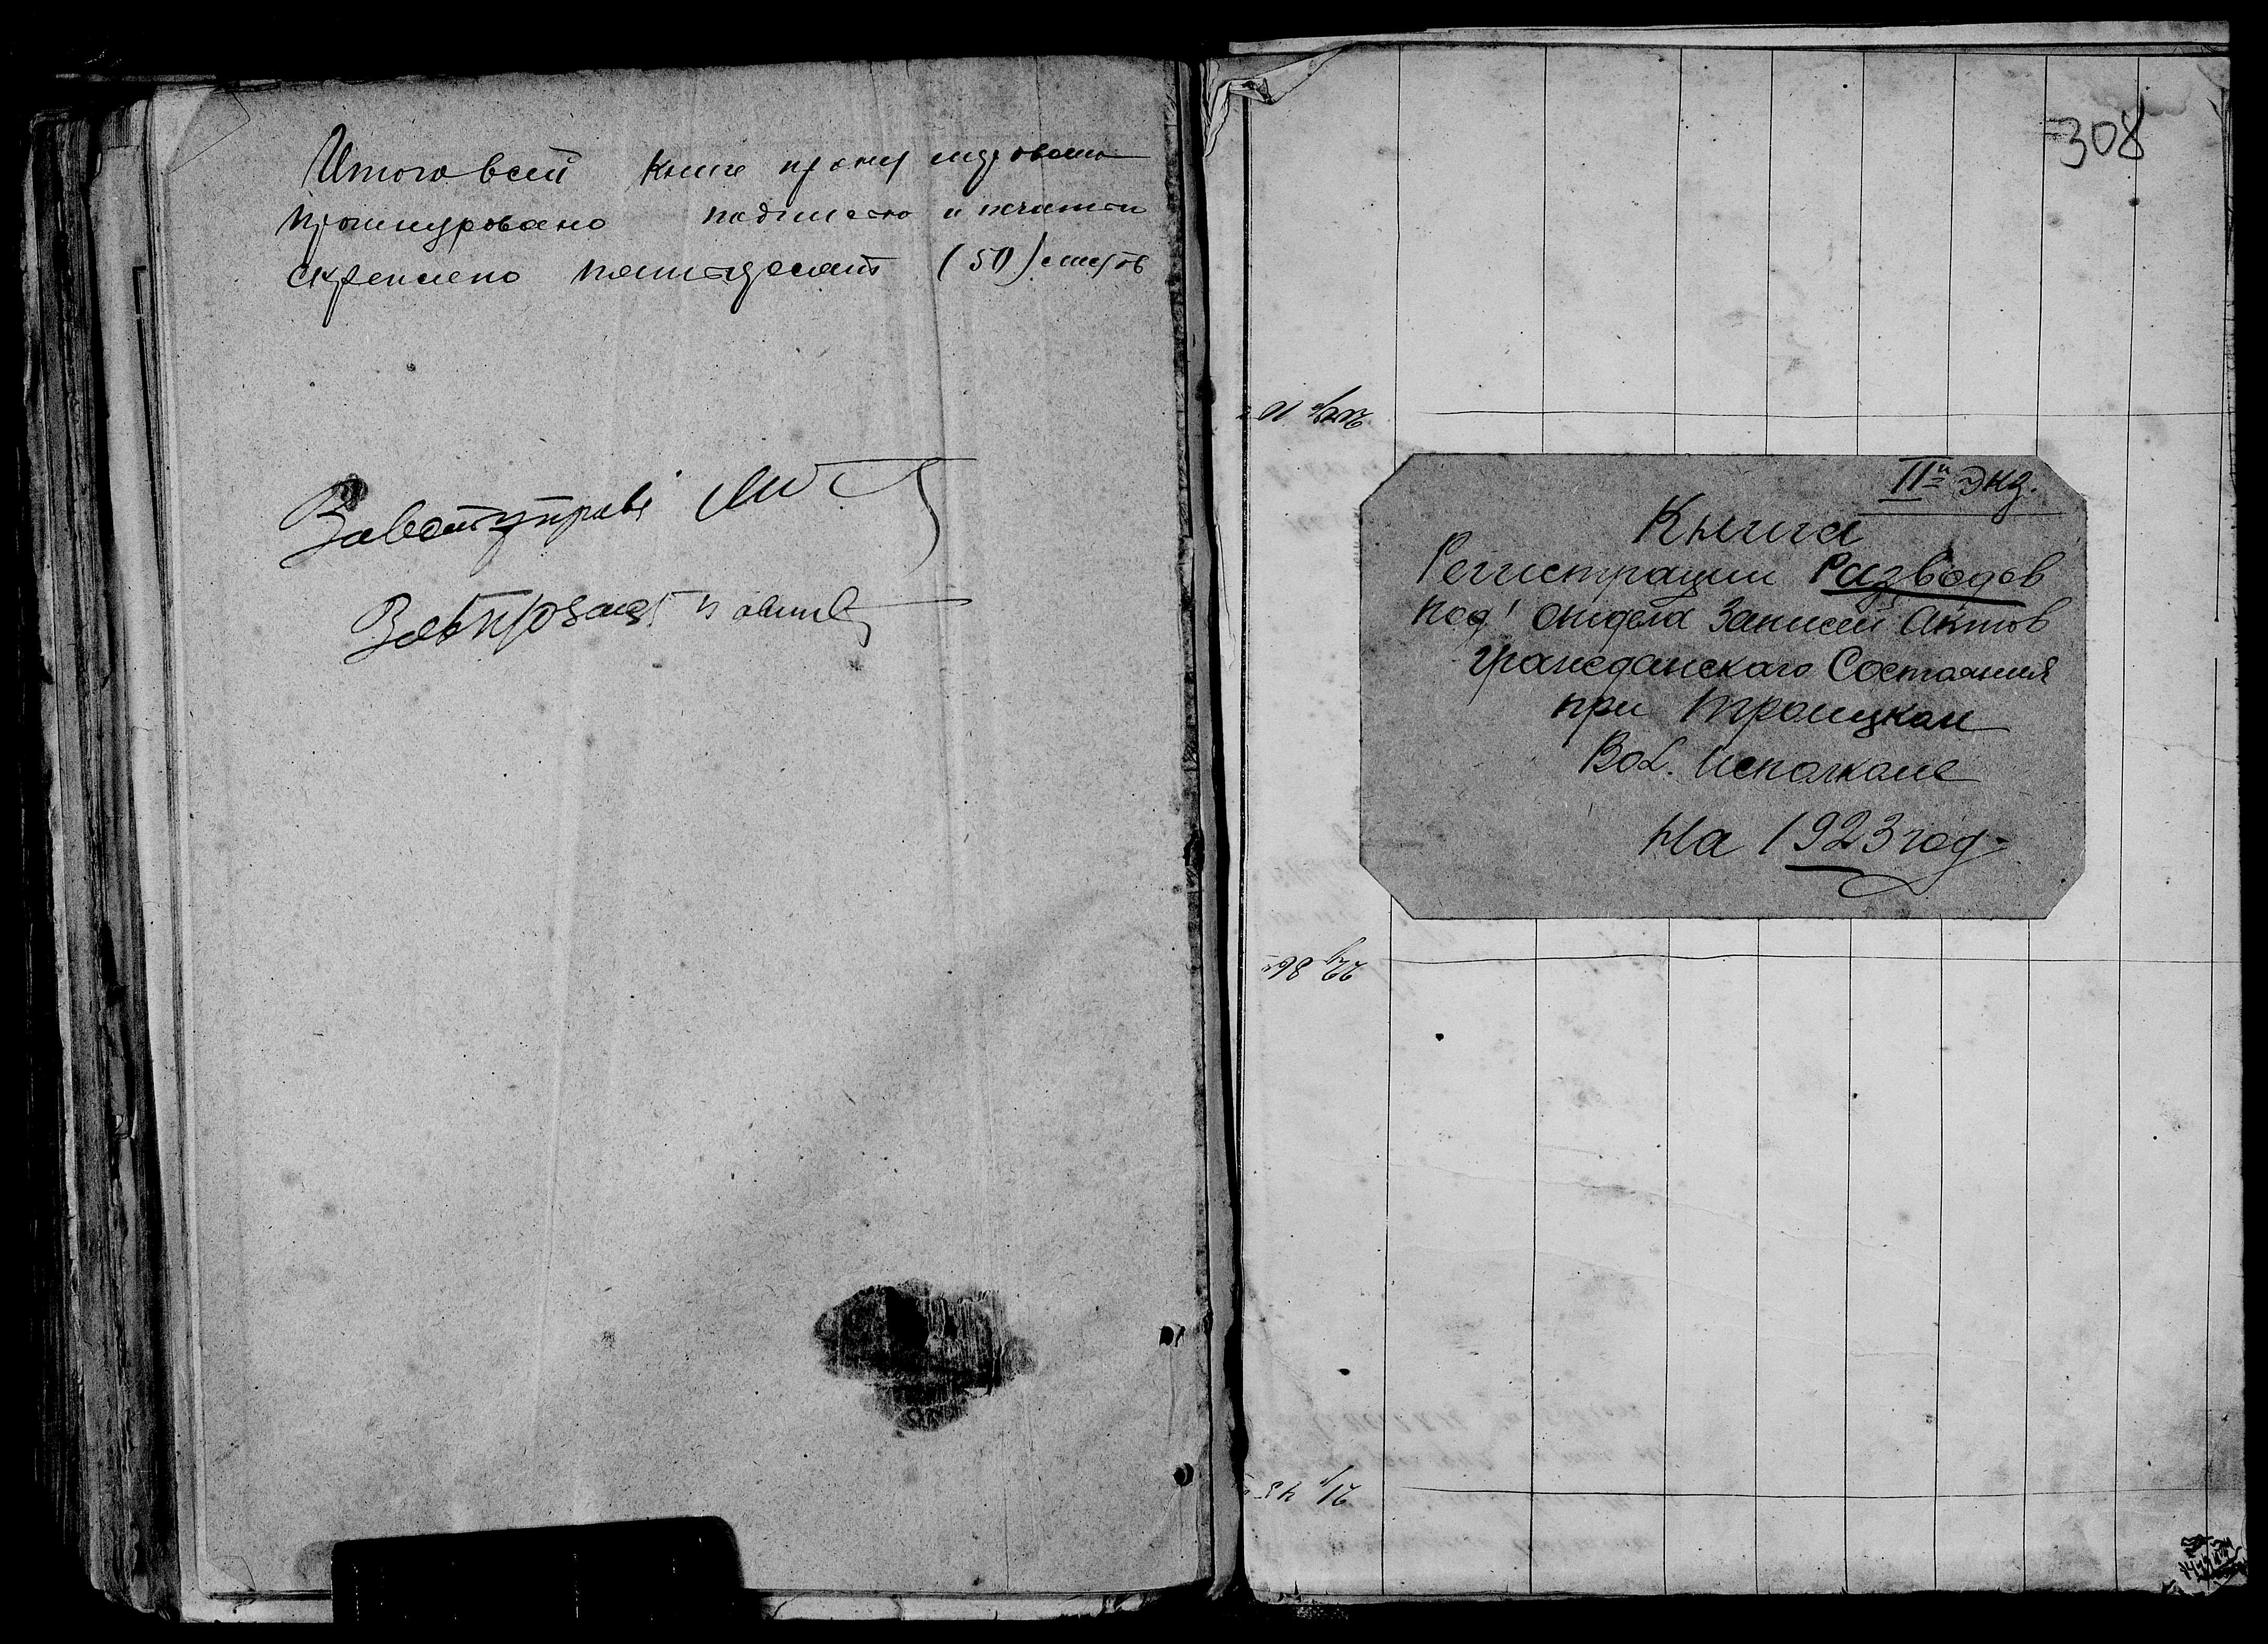 Итого в сей книге пронумеровано
прошнуровано подписью и печатью
скреплено пятьдесят (50) листов
308
IIй экз.
Книга
Регистрации Разводов
под'отдела Записей Актов
Гражданскаго Состояния
при Троицком
Вол. Исполкоме
На 1923 год